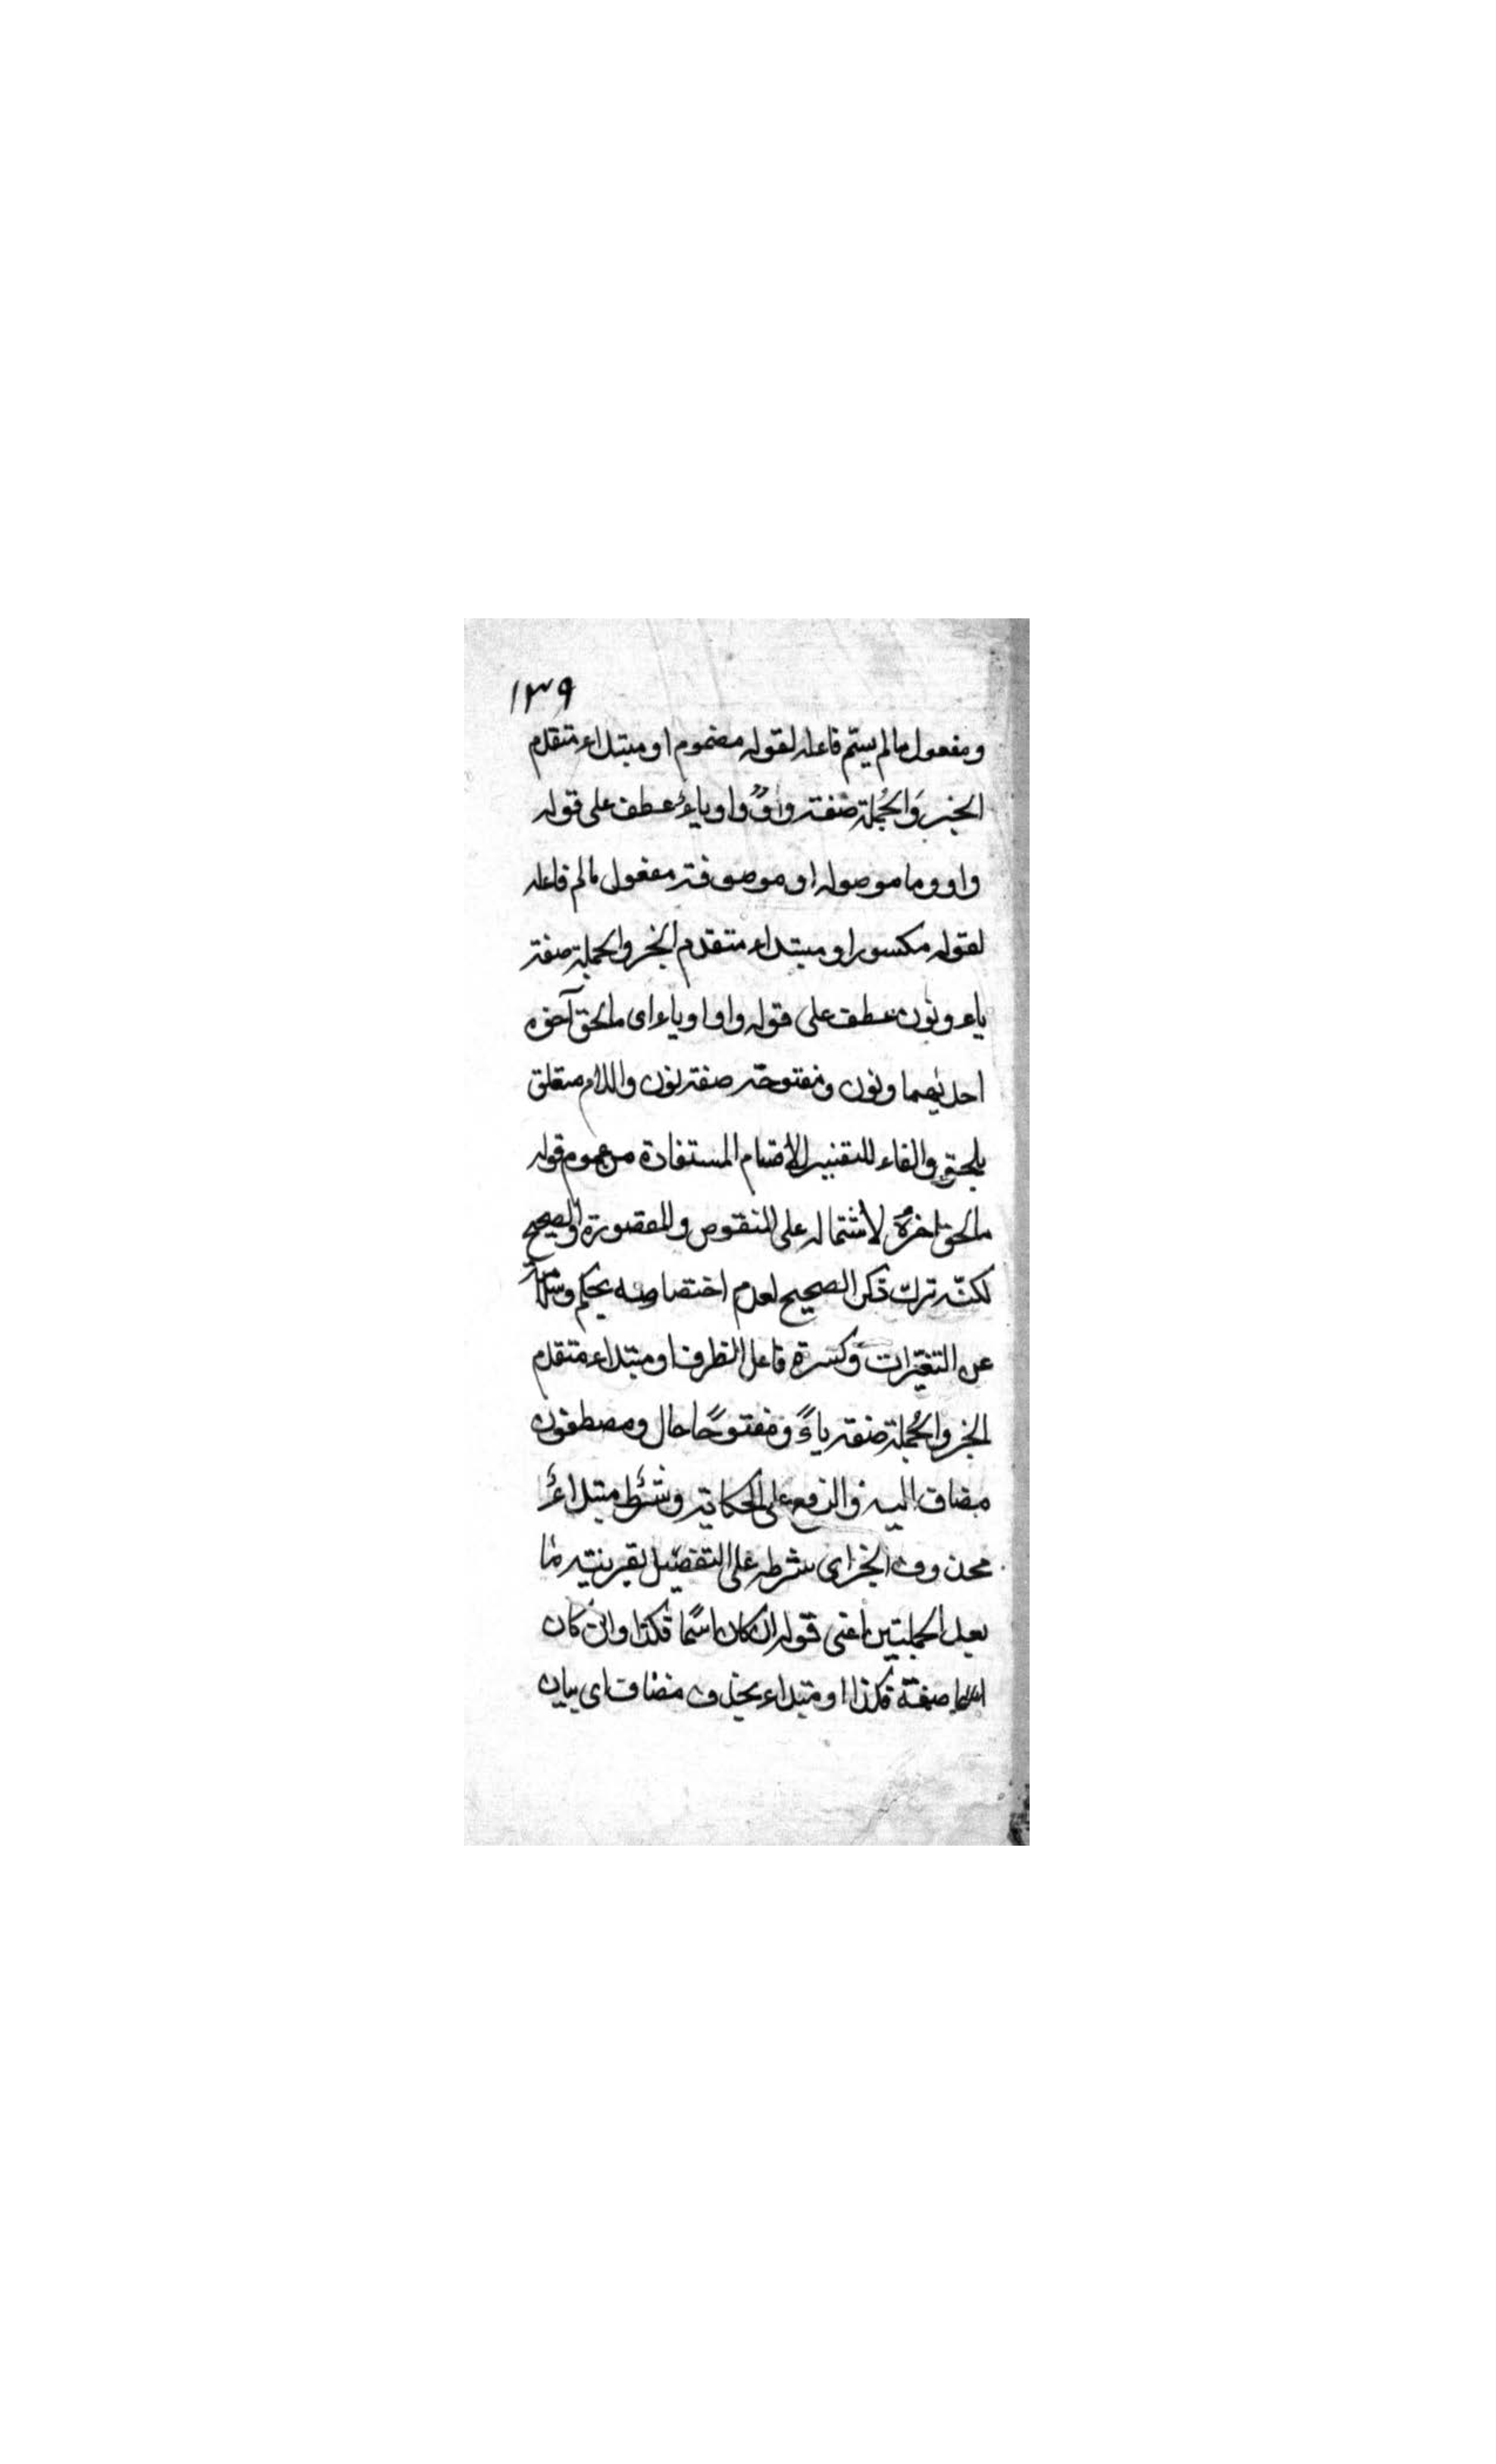 ١٣٩
ومفعول مالم يسمّ فاعله لقوله مضموم او مبتداء متقدم
الخبر وَالجُملة صفة واوٌ واو ياءٌ عطف على قوله
واو وما موصوله او موصوفة مفعول مالم فاعله
لقوله مكسور او مبتداء متقدم الخبر والجملة صفة
ياء ونون عطف على قوله واو او ياء اى مالحق آخره
احديهما ونون ومفتوحة صفة نون واللام متعلق
بلحق والفاء للتفسير الاقسام المستفادة من عموم قوله
مالحق اخرهُ لاشتماله على المنقوص والمقصورة والصحيح
لكنّه ترك ذكر الصحيح لعدم اختصاصه بحكم وسلامته
عن التغيّرات وكسرة فاعل الظرف او مبتداء متقدم
الخبر والجُملة صفة ياءً ومفتوحًا حال ومصطفون
مضاف اليه والرفع على الحكاية وشَرط مبتداءٌ
محذوف الخبر اى شرطه على التفضيل بقرينة ما
بعد الجملتين اعنى قوله ان كان اسمًا فكذا وان كان
اسما صفة فكذا او مبتداء بحذف مضاف اى بيان